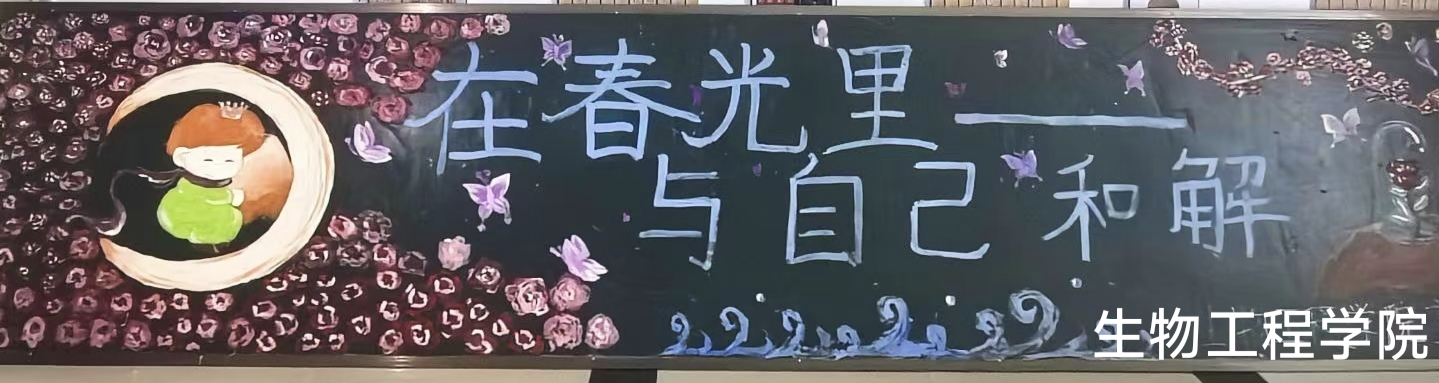 在春光里——
与自己和解
生物工程学院